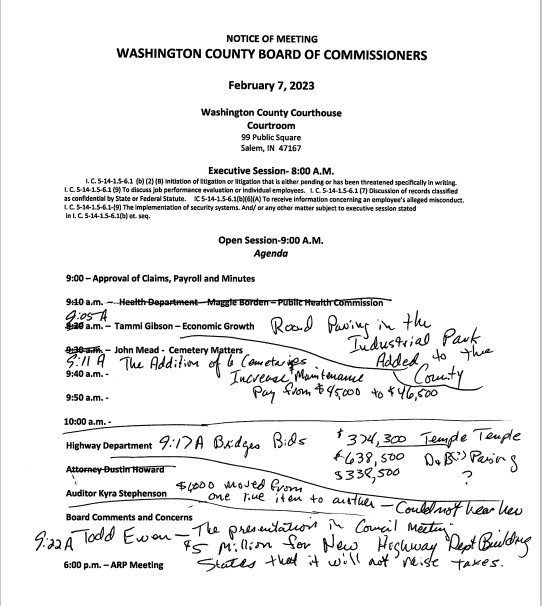 NOTICE OF MEETING
WASHINGTON COUNTY BOARD OF COMMISSIONERS
February 7, 2023
Washington County Courthouse
Courtroom
99 Public Square
Salem, IN 47167
Executive Session- 8:00 A.M.
I. C. 5-14-1.5-6.1 (b) (2) (B) Initiation of litigation or litigation that is either pending or has been threatened specifically in writing.
I. C. 5-14-1.5-6.1 (9) To discuss job performance evaluation or individual employees. I. C. 5-14-1.5-6.1 (7) Discussion of records classified
as confidential by State or Federal Statute. IC 5-14-1.5-6.1(b)(6)(A) To receive information concerning an employee's alleged misconduct.
I. C. 5-14-1.5-6.1-(9) The implementation of security systems. And/ or any other matter subject to executive session stated
in I. C. 5-14-1.5-6.1(b) et. seq.
Open Session-9:00 A.M.
Agenda
9:00 – Approval of Claims, Payroll and Minutes
9:10 a.m. – Health Department – Maggie Borden – Public Health Commission
9:05 A
9:20 a.m. – Tammi Gibson – Economic Growth Road Paving in the
Industrial Park
9:30 a.m. – John Mead - Cemetery Matters Added to the
9:11 A The Addition of 6 Cemeteries County
9:40 a.m. - Increase Maintenance
9:50 a.m. - Pay from $45,000 to $46,500
10:00 a.m. -
Highway Department 9:17A Bridges Bids $374,300 Temple Temple
$638,500 Paving
Attorney Dustin Howard $338,500 ?
Auditor Kyra Stephenson $1,000 moved from
one line item to another – Could not hear her
Board Comments and Concerns
9:22A Todd Ewen – The presentation in Council Meeting
$5 Million for New Highway Dept Building
6:00 p.m. – ARP Meeting States that it will not raise taxes.